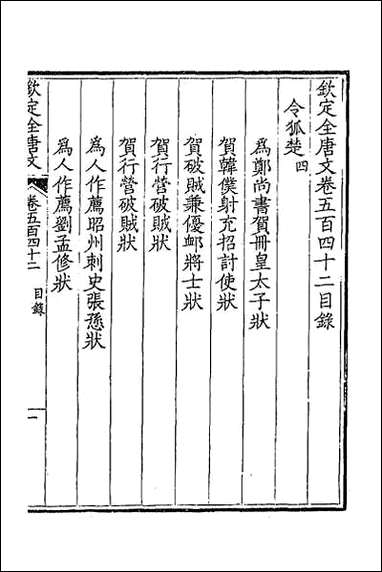 欽定全唐文卷五百四十二目錄
令狐楚四
為鄭尚書賀冊皇太子狀
賀韓僕射充招討使狀
賀破賊兼優卹將士狀
賀行營破賊狀
賀行營破賊狀
為人作薦昭州刺史張愻狀
為人作薦劉孟修狀
欽定全唐文 卷五百四十二 目錄 一